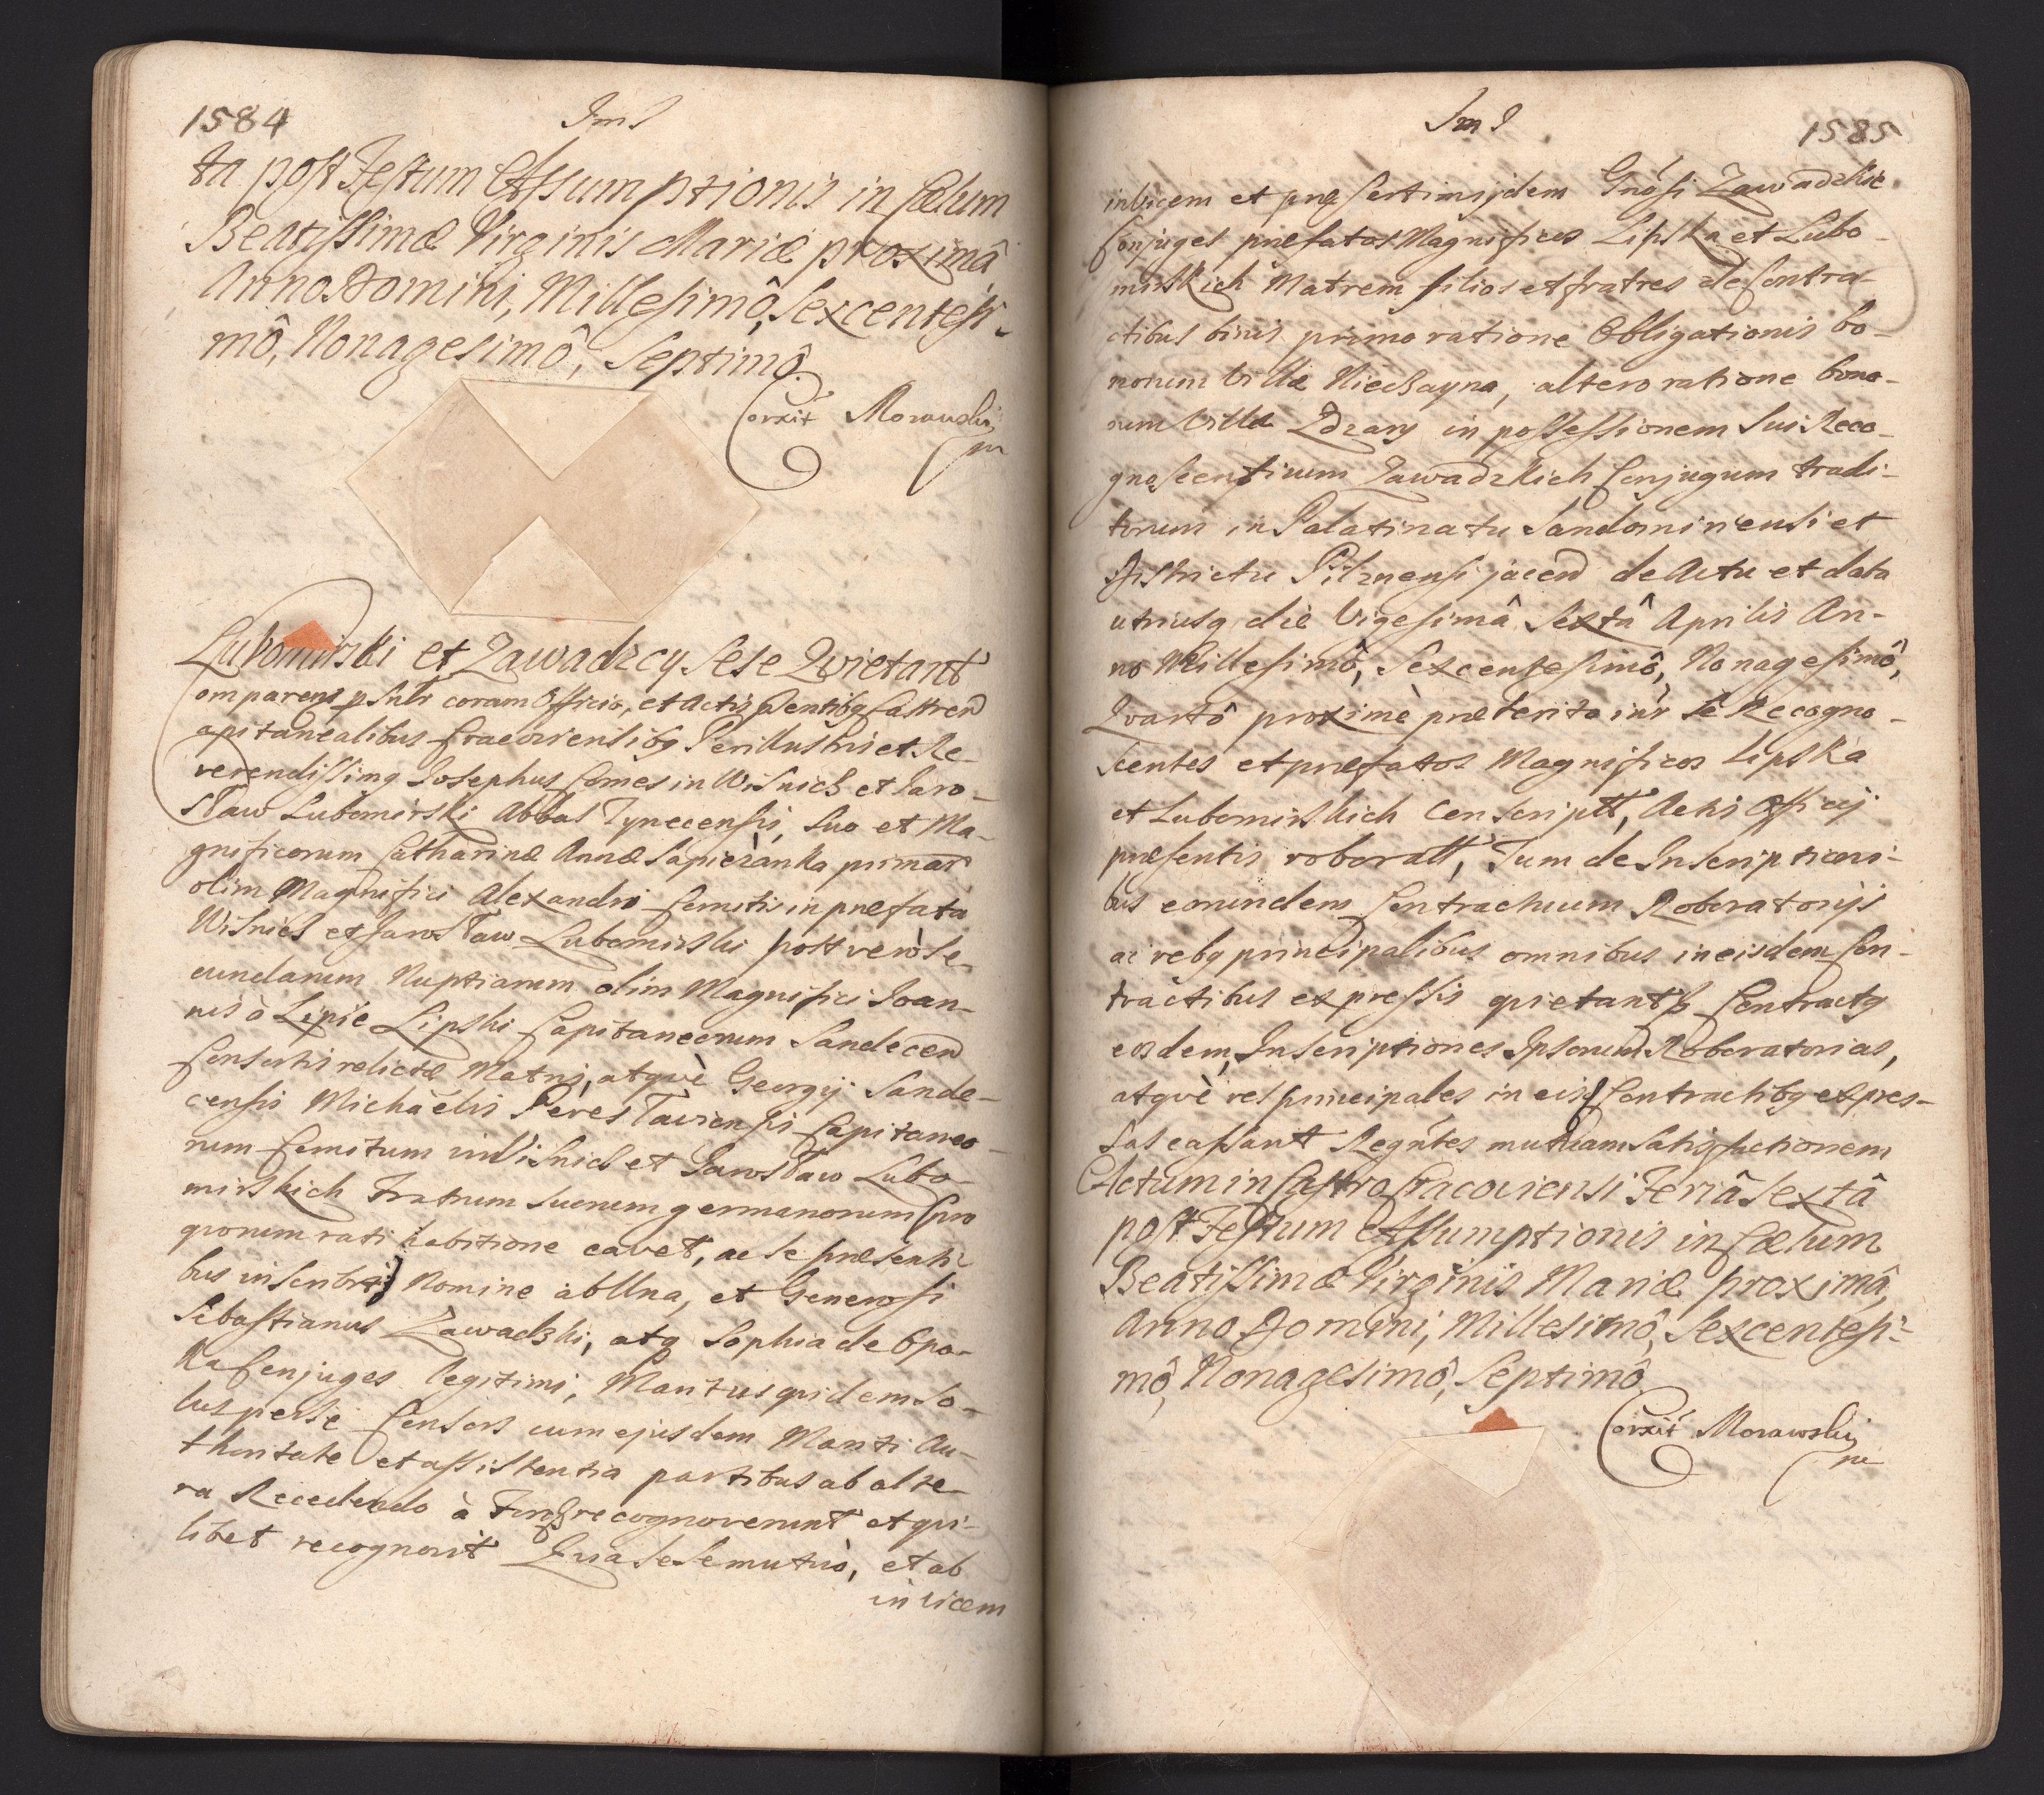 1584
ImS
ta post Festum Assumptionis in Cœlum
Beatissimæ Virginis Mariæ proximâ
Anno Domini, Millesimô, Sexcentesi-
mô, Nonagesimô, Septimô
Corxit Morawski
m
Lubomirski et Zawadzcy Sese Qvietant
Comparens psnlr coram Officio, et Actis Psentibq Castren
Capitanealibus Cracoviensibq Perillustris et Re-
verendissimq Josephus Comes in Wisnich et Jaro-
sław Lubomirski Abbas Tynecensis, Suo et Ma-
gnificorum Catharinæ Annæ Sapiezanka primar
olim Magnifici Alexandri Comitis in præfata
Wisnich et Jarosław Lubomirski post verò Se-
cundarum Nuptiarum olim Magnifici Joan-
nis à Lipie Lipski Capitaneorum Sandecen
Consortis relictæ Matris, atqvè Georgij Sande-
censis Michaëlis Peresławiensis Capitaneo-
rum Comitum in Wisnich et Jarosław Lubo-
mirskich Fratrum Suorum germanorum (pro
qvorum rati habitione cavet, ac se præsenti-
bus inscribit) Nomine ab Una, et Generosi
Sebastianus Zawadzki, atq Sophia de Opo-
ka Conjuges legitimi, Maritus qvidem So-
lus per se Consors cum ejusdem Mariti Au-
thoritate et assistentia partibus ab alte-
ra Recedendo à recognoverunt et qvi-
libet recognovit Qvia Sese mutuò, et ab
in vicem
ImS
1585
invicem et præsertim ijdem Gnosi Zawadzkie
Conjuges præfatos Magnificos Lipska et Lubo-
mirskich Matrem filios et fratres de Contra-
ctibus binis primo ratione Obligationis bo-
norum Villæ Niechayna, altero ratione bono-
rum Villa Zdzary in possessionem Sui Reco-
gnoscentium Zawadzkich Conjugum tradi-
torum in Palatinatu Sandomiriensi et
Districtu Pilznensi jacen de Actu et data
utriusq die Vigesimâ Sextâ Aprilis An-
no Millesimô, Sexcentesimô, Nonagesimô,
Qvartô proximè præterito inr Se Recogno-
scentes et præfatos Magnificos Lipska
et Lubomirskich Conscriptt, Actis Officij
præsentis roboratt, Tum de Inscriptioni-
bus eorundem Contractuum Roboratorijs
ac rebq principalibus omnibus in eisdem Con-
tractibus expressis qvietant Contractq
eosdem, Inscriptiones Ipsorum Roboratorias,
atqvè res principales in eisd Contractibq expres-
sas cassant Regntes mutuam Satisfactionem
Actum in Castro Cracoviensi Feriâ Sextâ
post Festum Assumptionis in Cœlum
Beatissimæ Virginis Mariæ proximâ,
Anno Domini, Millesimô, Sexcentesi-
mô, Nonagesimô, Septimô
Corxit Morawski
m